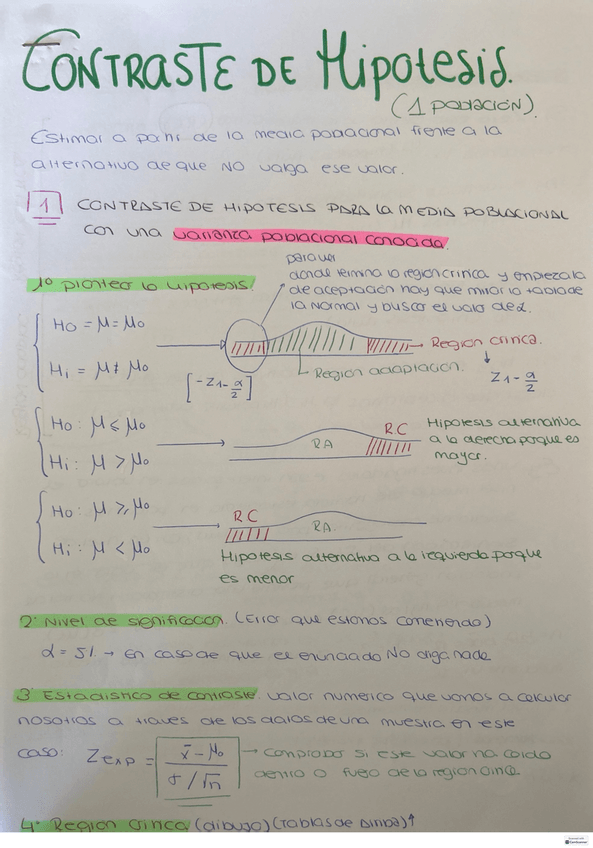 CONTRASTE DE HIPOTESIS.
(1 POBLACIÓN).
Estimar a partir de la media poblacional frente a la
alternativa de que NO valga ese valor.
1 CONTRASTE DE HIPOTESIS PARA LA MEDIA POBLACIONAL
con una varianza poblacional conocida.
1º planteo la hipotesis!
para ver
donde termina la region critica y empieza la
de aceptación hay que mirar la tabla de
la Normal y busco el valor de α.
H0 = μ = μ0
H1 = μ ≠ μ0
[-Z1-α/2]
Region critica.
Z1-α/2
Region aceptación.
H0: μ ≤ μ0
H1: μ > μ0
RA
RC
Hipotesis alternativa
a la derecha porque es
mayor.
H0: μ ≥ μ0
H1: μ < μ0
RC
RA.
Hipotesis alternativa a la izquierda porque
es menor
2º Nivel de significacion. (Error que estamos cometiendo)
α = 5% → en caso de que el enunciado NO diga nada
3º Estadistico de contraste. valor numerico que vamos a calcular
nosotros a traves de los datos de una muestra en este
caso: Zexp = x̄ - μ0 / σ/√n → comprobar si este valor ha caido
dentro o fuera de la region critica.
4º Region critica (dibujo) (tablas de arriba)↑
CamScanner